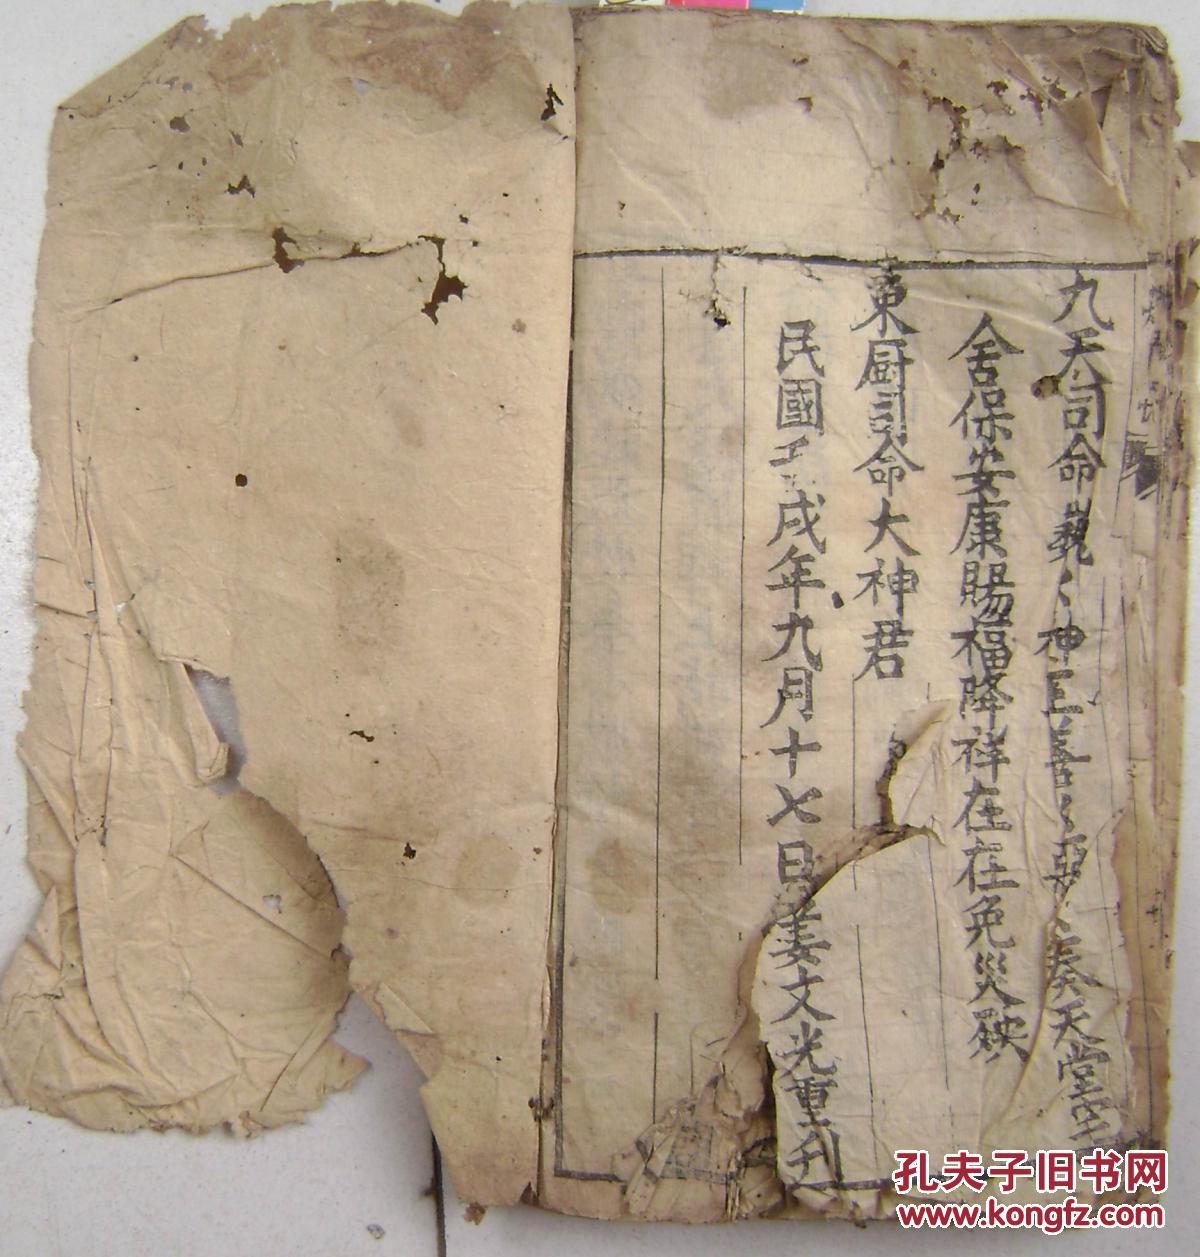 九天司命巍〻神囗善〻惡〻奏天堂
舍保安康賜福降祥在在免災殃
東厨司命大神君
民國壬戌年九月十七日姜文光重刊
孔夫子旧书网
www.kongfz.com